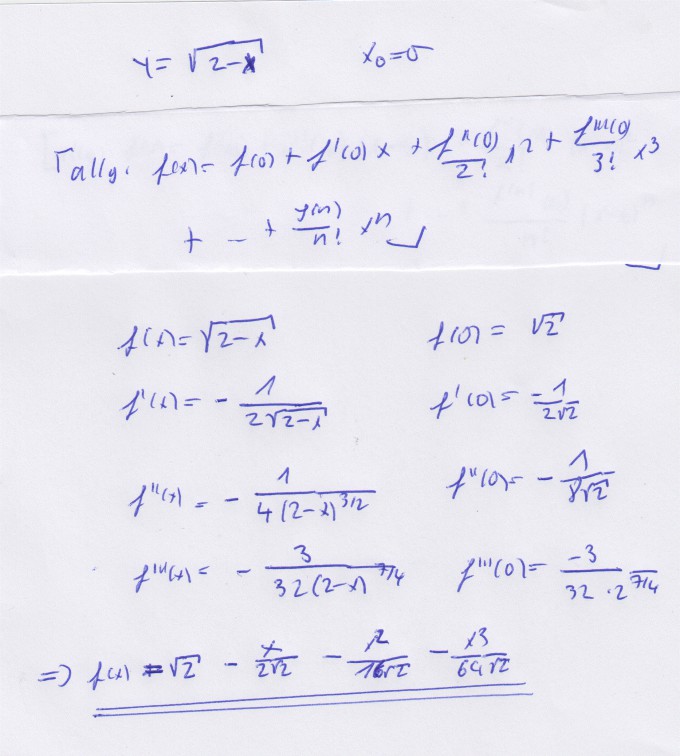 y = √(2-x) x₀ = 0
Tally. f(x) = f(0) + f'(0) x + f''(0)/2! x² + f'''(0)/3! x³
+ - + y(n)/n! xⁿ
f(x) = √(2-x) f(0) = √2
f'(x) = - 1/(2√(2-x)) f'(0) = -1/(2√2)
f''(x) = - 1/(4(2-x)^(3/2)) f''(0) = - 1/(8√2)
f'''(x) = - 3/(32(2-x)^(7/4)) f'''(0) = -3/(32·2^(7/4))
=> f(x) = √2 - x/(2√2) - x²/(16√2) - x³/(64√2)